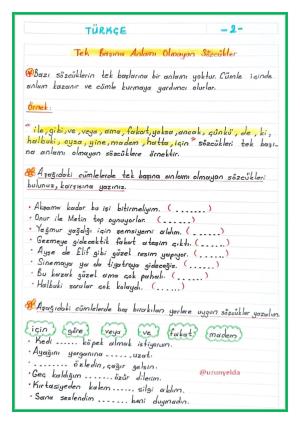 TÜRKÇE
-2-
Tek Başına Anlamı Olmayan Sözcükler
Bazı sözcüklerin tek başlarına bir anlamı yoktur. Cümle içinde
anlam kazanır ve cümle kurmaya yardımcı olurlar.
Örnek:
"ile, gibi, ve, veya, ama, fakat, yoksa, ancak, çünkü, de, ki,
halbuki, oysa, yine, madem, hatta, için" sözcükleri tek başı-
na anlamı olmayan sözcüklere örnektir.
Aşağıdaki cümlelerde tek başına anlamı olmayan sözcükleri
bulunuz, karşısına yazınız.
• Akşama kadar bu işi bitirmeliyim. (.......)
• Onur ile Metin top oynuyorlar. (.......)
• Yağmur yağdığı için şemsiyemi aldım. (.......)
• Gezmeye gidecektik fakat ateşim çıktı. (......)
• Ayşe de Elif gibi güzel resim yapıyor. (.......)
• Sinemaya ya da tiyatroya gideceğiz. (.......)
• Bu kazak güzel ama çok pahalı. (.......)
• Halbuki sorular çok kolaydı. (.......)
Aşağıdaki cümlelerde boş bırakılan yerlere uygun sözcükler yazalım.
için göre veya ve fakat madem
• Kedi ...... köpek almak istiyorum.
• Ayağını yorganına ...... uzat.
• ........ özledin, çağır gelsin.
• Geç kaldığım ...... özür dilerim.
• Kırtasiyeden kalem ...... silgi aldım.
• Sana seslendim ...... beni duymadın.
@urunyelda